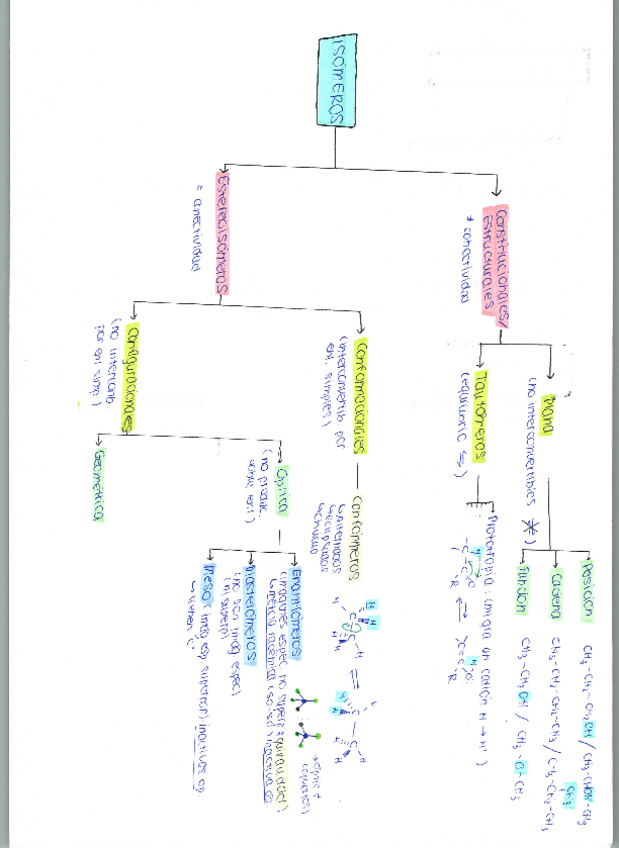 ISÓMEROS
Constitucionales/
Estructurales
≠ conectividad
Plana
(no interconvertibles)
Posición
CH₃-CH₂-CH₂OH / CH₃-CHOH-CH₃
Cadena
CH₃-CH₂-CH₂-CH₃ / CH₃-CH-CH₃
CH₃
Función
CH₃-CH₂OH / CH₃-O-CH₃
Tautómeros
(equilibrio ⇌)
Prototropía: (migra un catión H → H⁺)
Estereoisómeros
= conectividad
Conformacionales
(interconvertib por
enl. simples)
Confórmeros
↳ alternados
↳ eclipsados
Configuracionales
(no interconv.
por enl simp)
Óptica
Enantiómeros
(imágenes espec. no superp.
↳ mezcla racémica (50:50) inactiva
Diasterómeros
(no son imág espec)
(ni superp)
Meso (imág esp superpon) inactivos op.
Geométrica